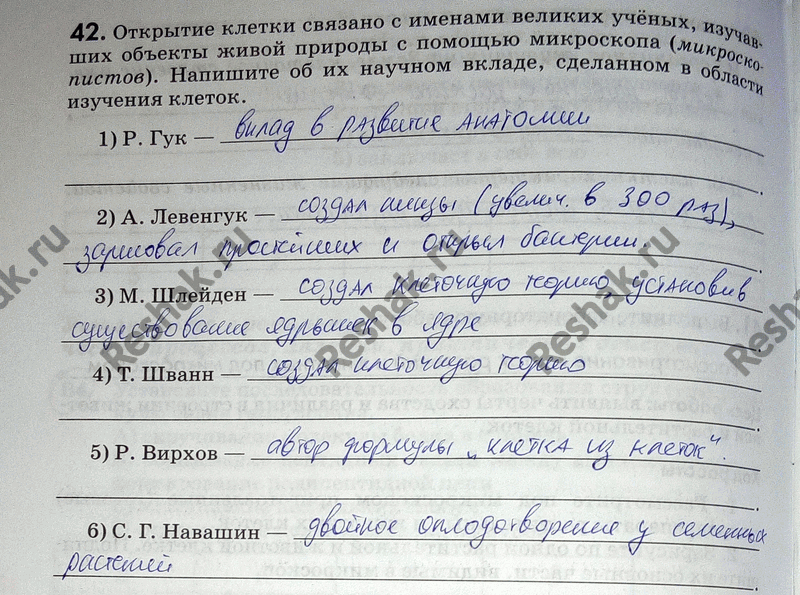 42. Открытие клетки связано с именами великих учёных, изучав-
ших объекты живой природы с помощью микроскопа (микроско-
пистов). Напишите об их научном вкладе, сделанном в области
изучения клеток.
1) Р. Гук — вклад в развитие анатомии
2) А. Левенгук — создал линзы (увелич. в 300 раз),
зарисовал простейших и открыл бактерии.
3) М. Шлейден — создал клеточную теорию, установив
существование ядрышек в ядре
4) Т. Шванн — создал клеточную теорию
5) Р. Вирхов — автор формулы „клетка из клеток".
6) С. Г. Навашин — двойное оплодотворение у семенных
растений
Reshak.ru
Reshak.ru
Reshak.ru
Reshak.ru
Reshak.ru
Reshak.ru